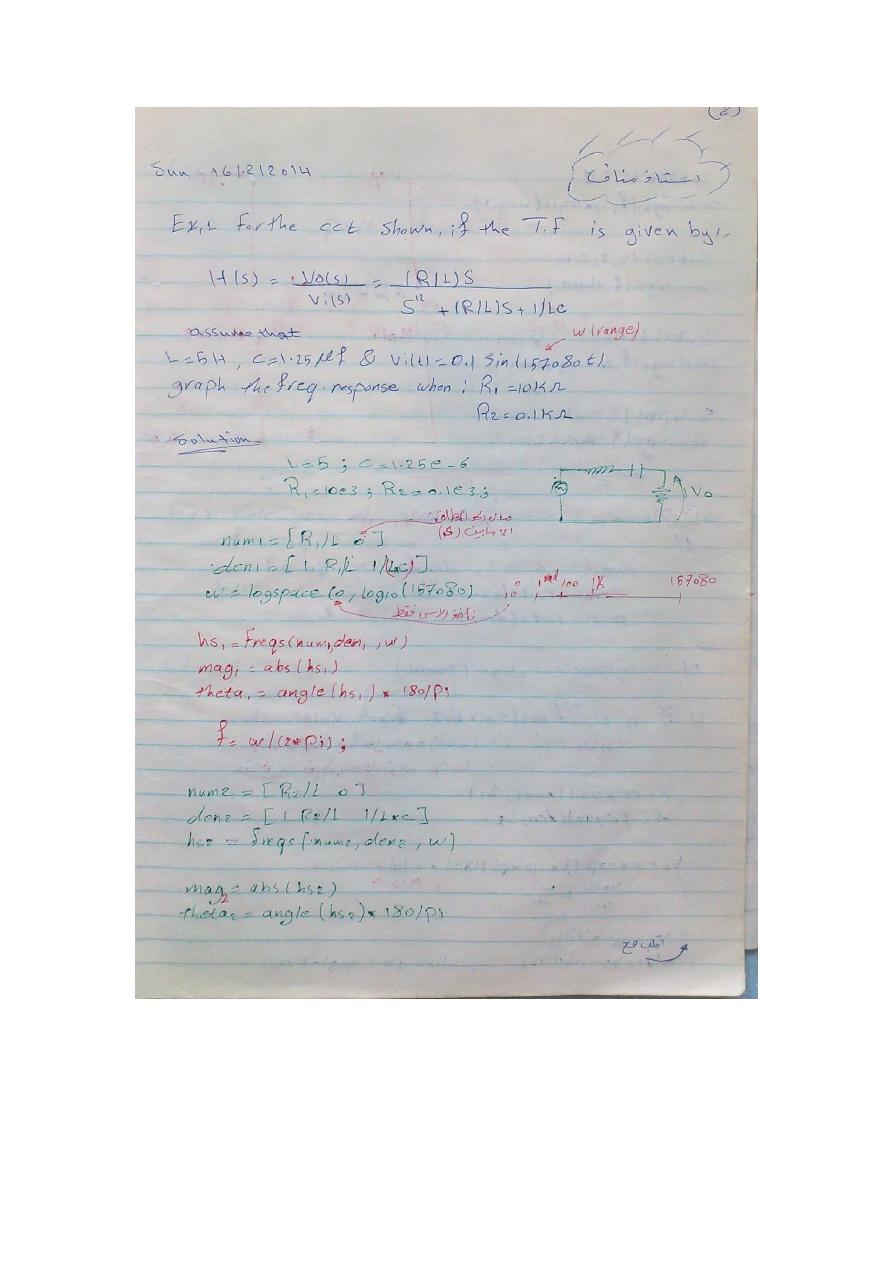 (2)
استاذ مناف
Sun 16/2/2014
Ex,1 For the cct shown, if the T.f is given by:-
H(s) = Vo(s) / Vi(s) = (R/L)S / S^2 + (R/L)S + 1/Lc
assume that
w (range)
L=5H, C=1.25 μf & Vi(t)=0.1 Sin(157080t).
graph the freq. response when : R1=10KΩ
R2=0.1KΩ
Solution
L=5 ; C=1.25e-6
R1=10e3 ; R2=0.1e3;
Vo
(S)
num1=[R1/L 0]
den1=[1 R1/L 1/(L*c)].
w=logspace(0, log10(157080)) 10^0 1 rad 100 1K 157080
نأخذ الاس فقط
hs1=freqs(num1,den1,w)
mag1=abs(hs1)
theta1=angle(hs1)*180/Pi
f=w/(2*Pi);
num2=[R2/L 0]
den2=[1 R2/L 1/L*c]
hs2=freqs(num2,den2,w)
mag2=abs(hs2)
theta2=angle(hs2)*180/Pi